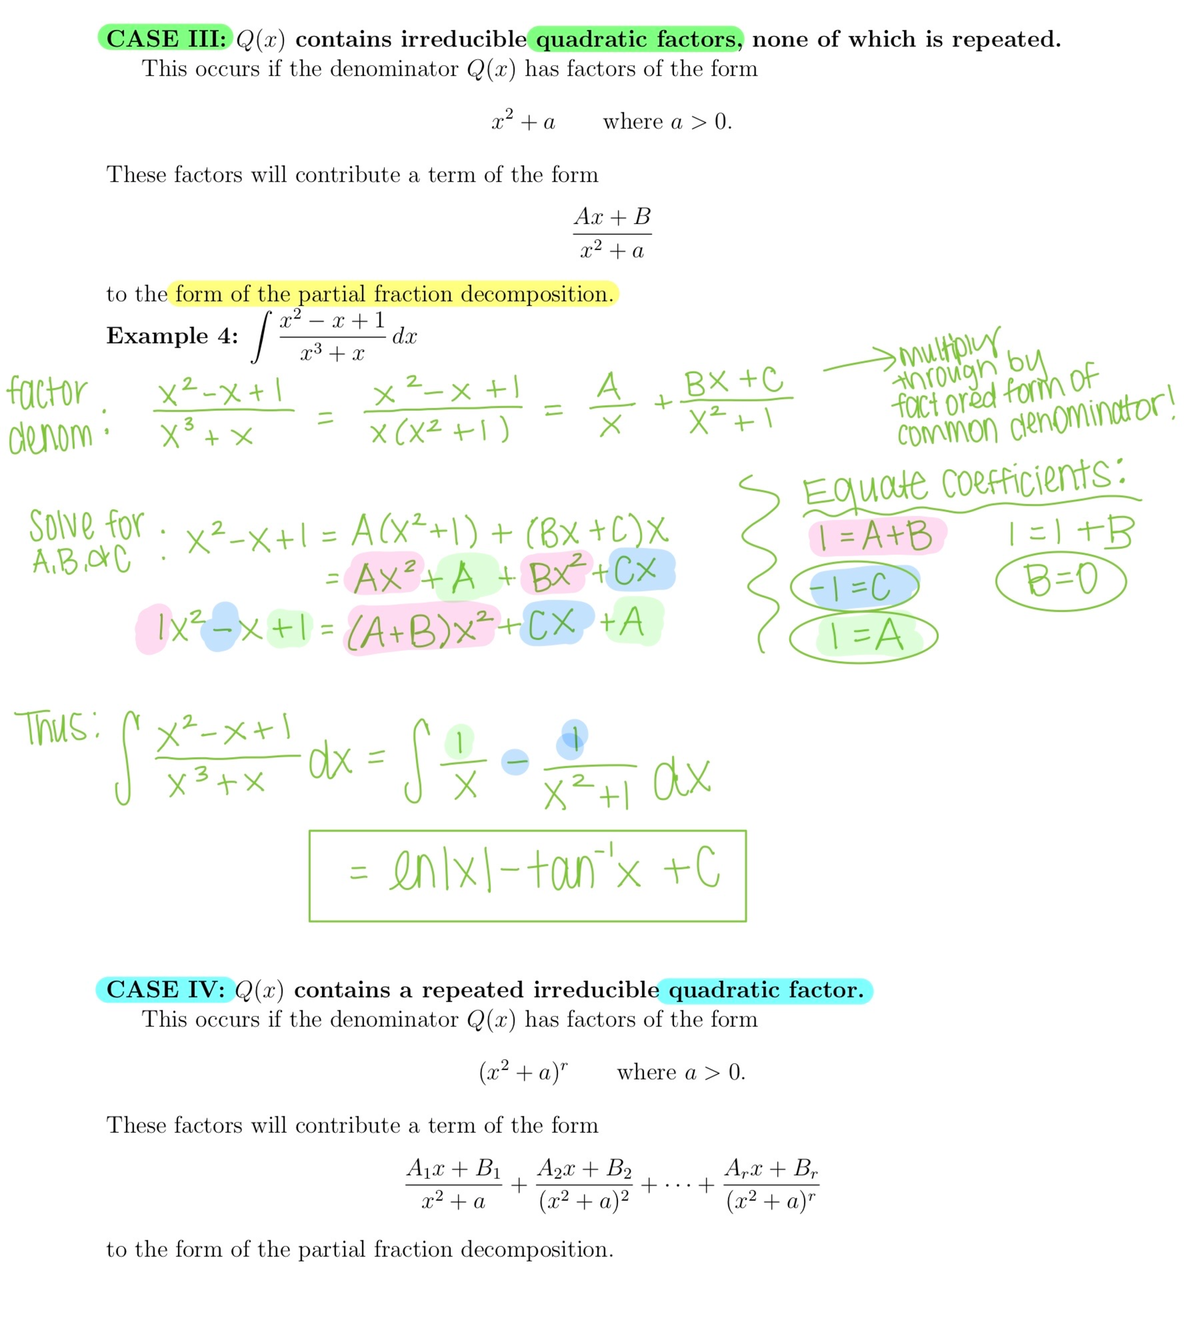 CASE III: Q(x) contains irreducible quadratic factors, none of which is repeated.
This occurs if the denominator Q(x) has factors of the form
x² + a where a > 0.
These factors will contribute a term of the form
Ax + B
x² + a
to the form of the partial fraction decomposition.
Example 4: ∫ (x² − x + 1)/(x³ + x) dx
→ multiply through by factored form of common denominator!
factor denom: (x²-x+1)/(x³+x) = (x²-x+1)/(x(x²+1)) = A/x + (Bx+C)/(x²+1)
Solve for A,B,&C : x²-x+1 = A(x²+1) + (Bx+C)x
= Ax²+A + Bx²+Cx
1x²-x+1 = (A+B)x²+Cx+A
Equate coefficients:
1=A+B 1=1+B
-1=C B=0
1=A
Thus: ∫ (x²-x+1)/(x³+x) dx = ∫ 1/x - 1/(x²+1) dx
= ln|x|-tan⁻¹x +C
CASE IV: Q(x) contains a repeated irreducible quadratic factor.
This occurs if the denominator Q(x) has factors of the form
(x² + a)ʳ where a > 0.
These factors will contribute a term of the form
(A₁x + B₁)/(x² + a) + (A₂x + B₂)/(x² + a)² + · · · + (Aᵣx + Bᵣ)/(x² + a)ʳ
to the form of the partial fraction decomposition.